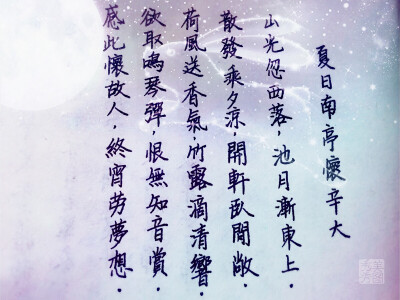 夏日南亭懷辛大
山光忽西落，池月漸東上．
散發乘夕涼，開軒臥閒敞．
荷風送香氣，竹露滴清響．
欲取鳴琴彈，恨無知音賞，
感此懷故人，終宵勞夢想．